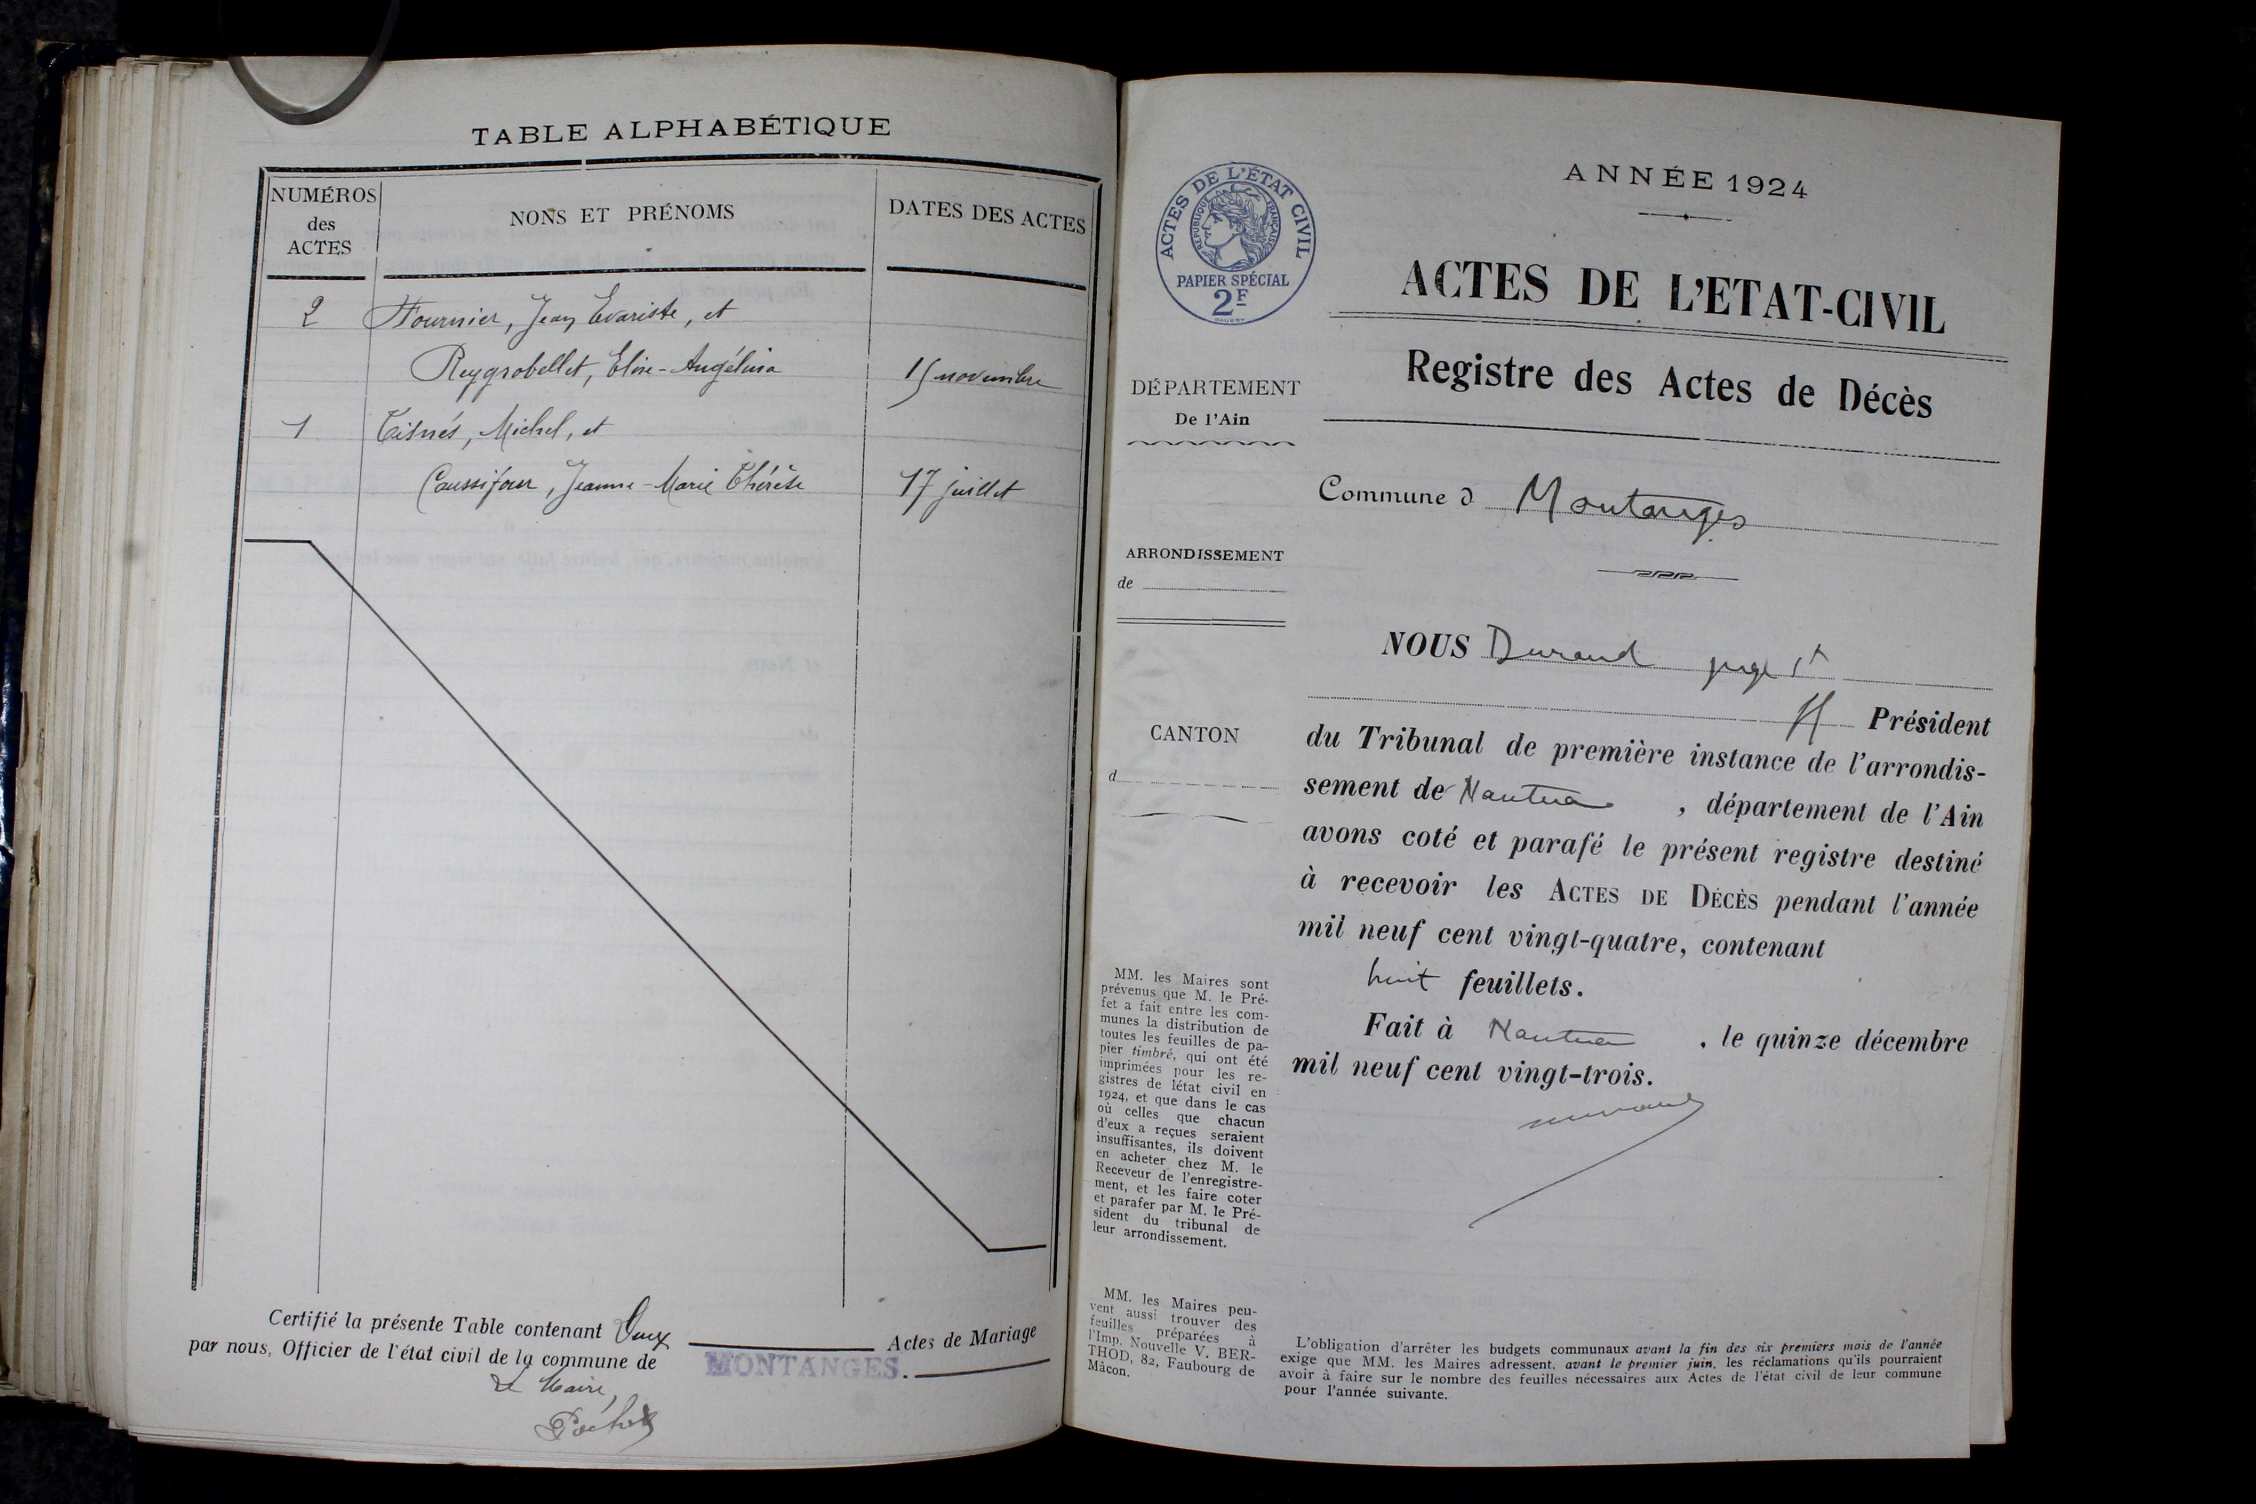 TABLE ALPHABÉTIQUE
NUMÉROS
des
ACTES
NONS ET PRÉNOMS
DATES DES ACTES
2 Fournier, Jean Evariste, et
Reygrobellet, Elise-Angélina 15 novembre
1 Tisnés, Michel, et
Jeanne-Marie Thérèse 17 juillet
Certifié la présente Table contenant Deux Actes de Mariage
par nous, Officier de l'état civil de la commune de MONTANGES.
Le Maire,
ANNÉE 1924
ACTES DE L'ÉTAT CIVIL
RÉPUBLIQUE FRANÇAISE
PAPIER SPÉCIAL
2F
ACTES DE L'ETAT-CIVIL
Registre des Actes de Décès
DÉPARTEMENT
De l'Ain
Commune d Montanges
ARRONDISSEMENT
de
CANTON
d
NOUS Durand juge
Président
du Tribunal de première instance de l'arrondis-
sement de Nantua, département de l'Ain
avons coté et parafé le présent registre destiné
à recevoir les ACTES DE DÉCÈS pendant l'année
mil neuf cent vingt-quatre, contenant
huit feuillets.
Fait à Nantua, le quinze décembre
mil neuf cent vingt-trois.
MM. les Maires sont
prévenus que M. le Pré-
fet a fait entre les com-
munes la distribution de
toutes les feuilles de pa-
pier timbré, qui ont été
imprimées pour les re-
gistres de létat civil en
1924, et que dans le cas
où celles que chacun
d'eux a reçues seraient
insuffisantes, ils doivent
en acheter chez M. le
Receveur de l'enregistre-
ment, et les faire coter
et parafer par M. le Pré-
sident du tribunal de
leur arrondissement.
MM. les Maires peu-
vent aussi trouver des
feuilles préparées à
l'Imp. Nouvelle V. BER-
THOD, 82, Faubourg de
Mâcon.
L'obligation d'arrêter les budgets communaux avant la fin des six premiers mois de l'année
exige que MM. les Maires adressent, avant le premier juin, les réclamations qu'ils pourraient
avoir à faire sur le nombre des feuilles nécessaires aux Actes de l'état civil de leur commune
pour l'année suivante.